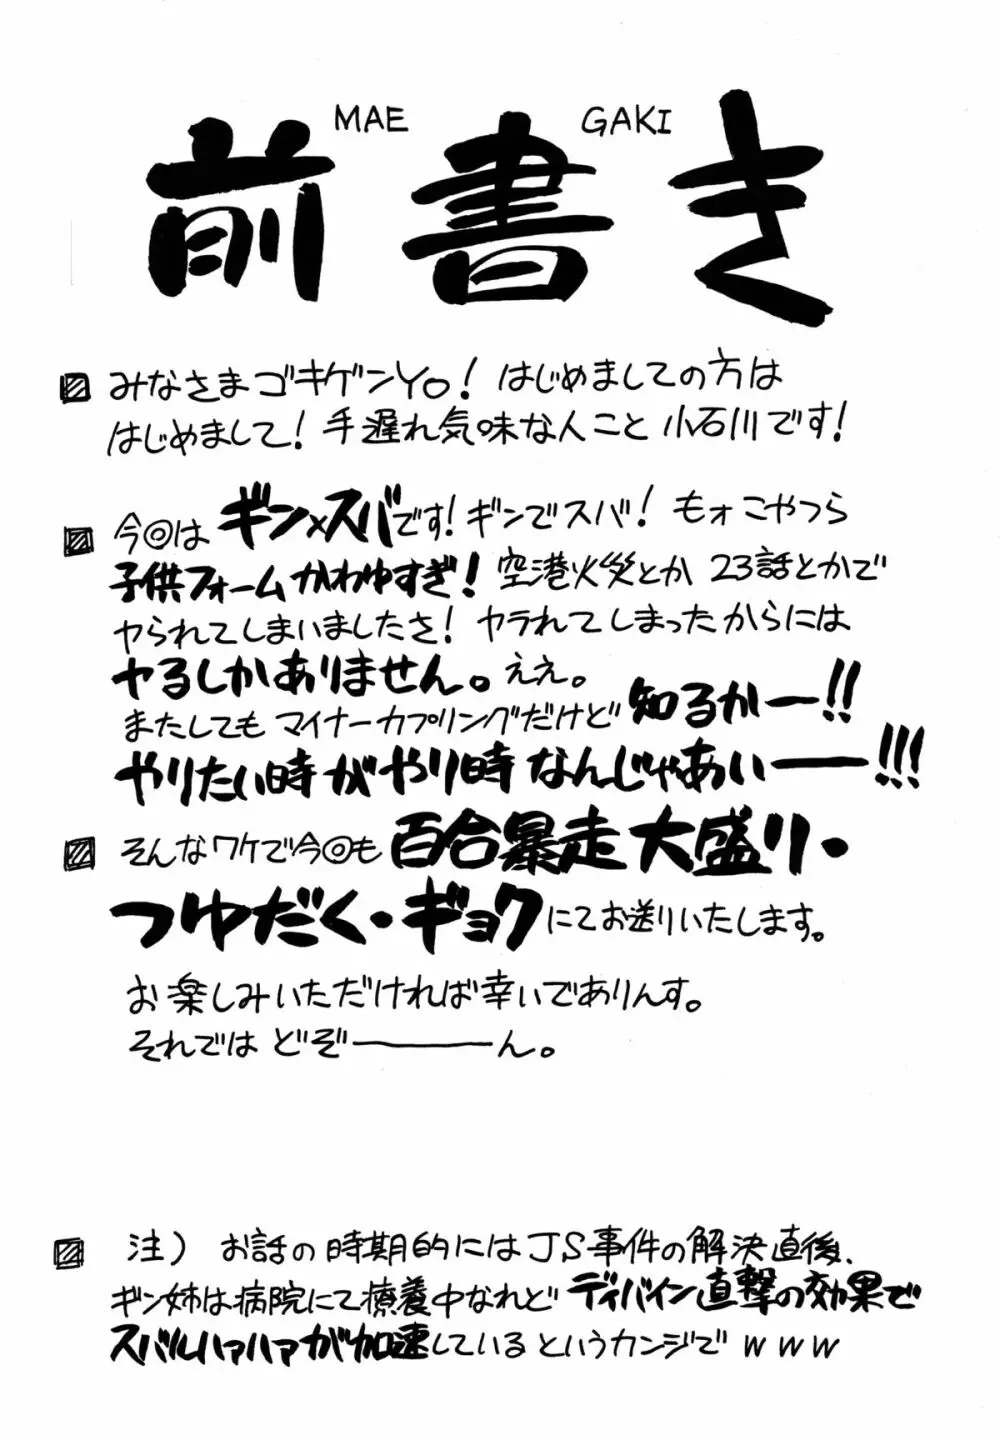 MAE GAKI
前書き
みなさまゴキゲンYO! はじめましての方は
はじめまして! 手遅れ気味な人こと小石川です!
今回はギン×スバです! ギンでスバ! もォこやつら
子供フォームかわゆすぎ! 空港火災とか23話とかで
ヤられてしまいましたさ! ヤラれてしまったからには
ヤるしかありません。ええ。
またしてもマイナーカプリングだけど 知るかー!!
やりたい時がやり時なんじゃあいー!!!
そんなワケで今回も百合暴走大盛り・
つゆだく・ギョクにてお送りいたします。
お楽しみいただければ幸いでありんす。
それではどぞーーん。
注) お話の時期的にはJS事件の解決直後、
ギン姉は病院にて療養中なれどディバイン直撃の効果で
スバルハァハァが加速しているというカンジでwww